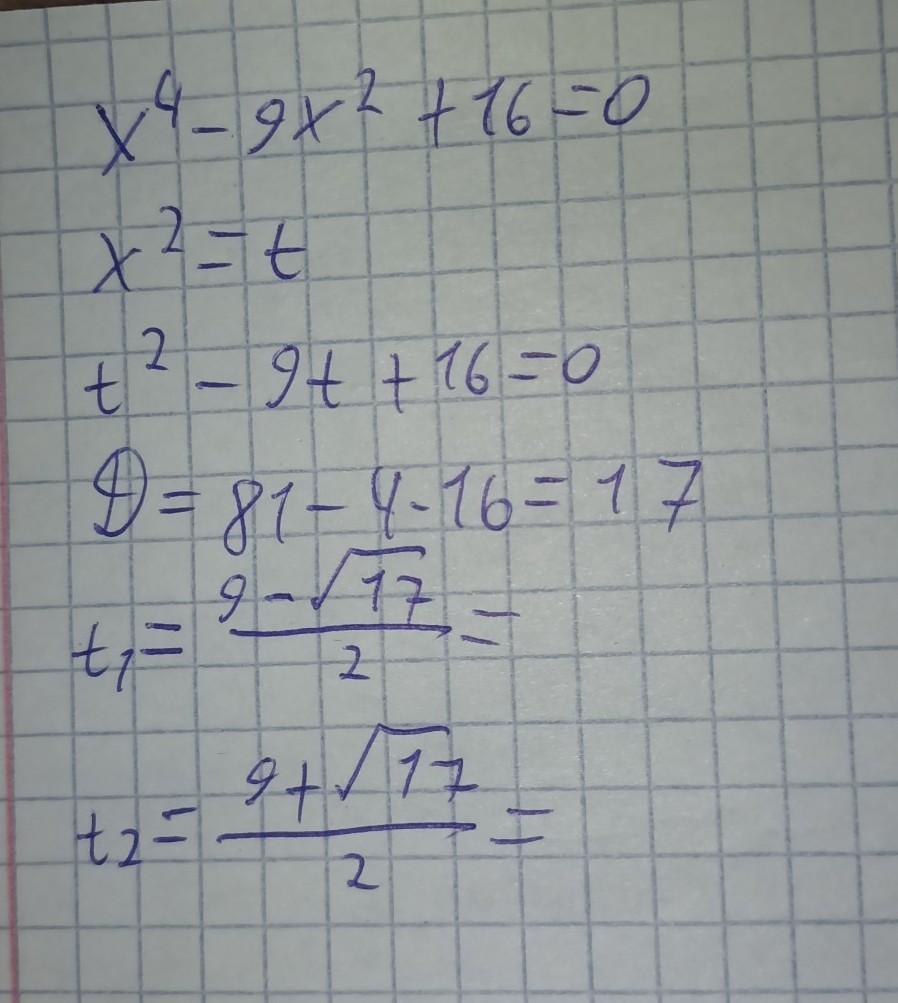 x⁴ - 9x² + 16 = 0
x² = t
t² - 9t + 16 = 0
D = 81 - 4·16 = 17
t₁ = (9 - √17)/2 =
t₂ = (9 + √17)/2 =